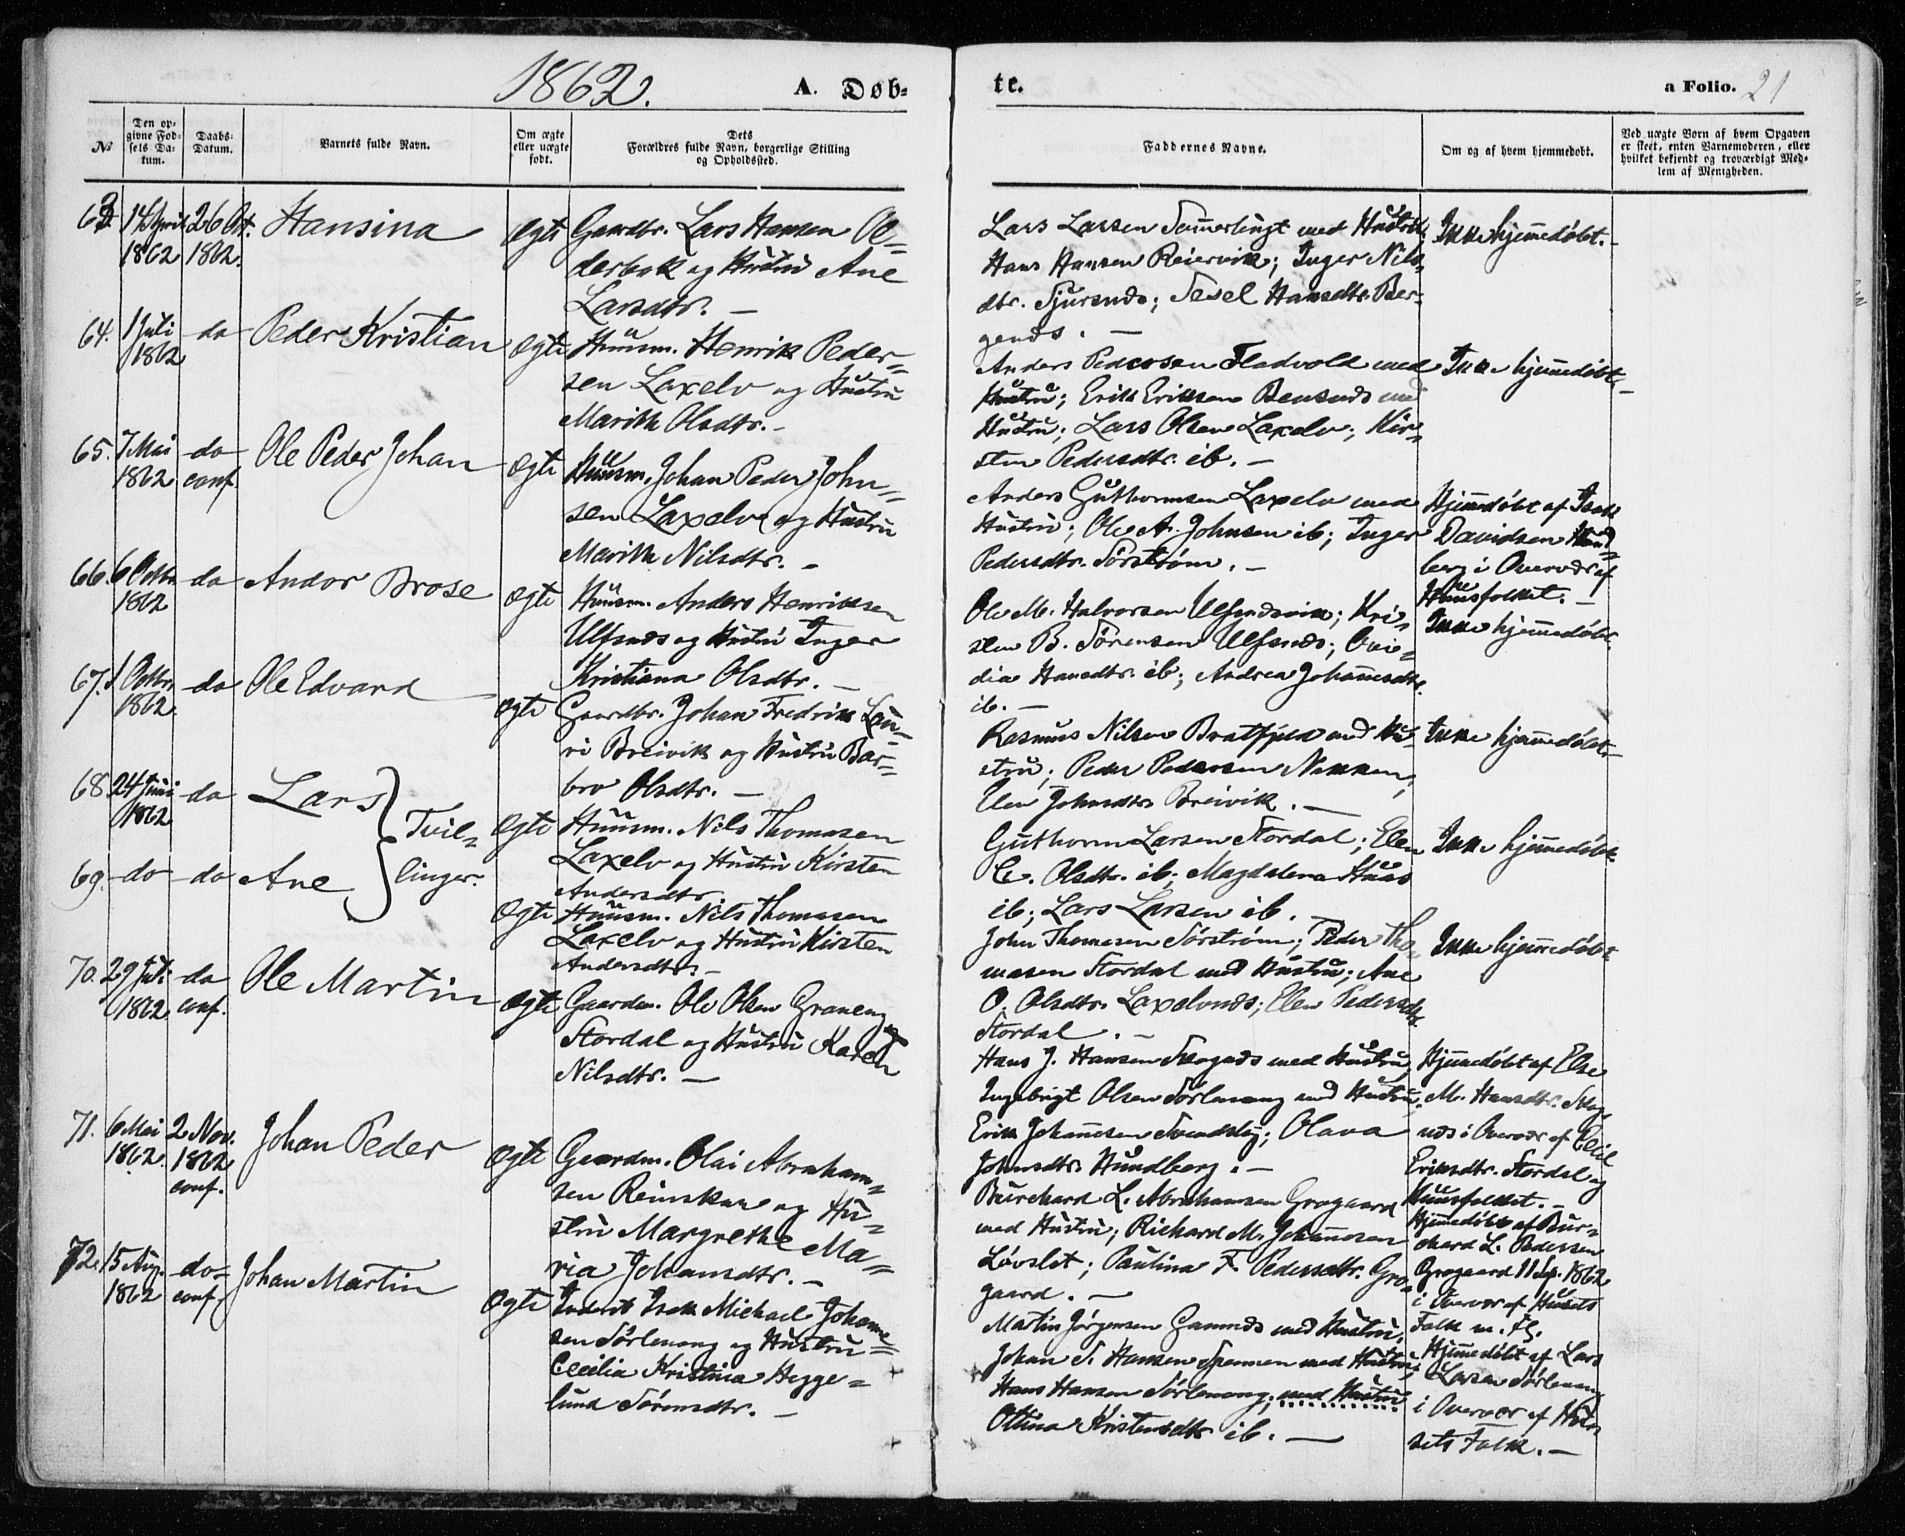 1862. A. Døb= te. a Folio. 21
No
Den op=
givne Fød=
sels Da=
tum.
Daabs=
Datum.
Barnets fulde Navn.
Om ægte
eller uægte
født.
Dets
Forældres fulde Navn, borgerlige Stilling
og Opholdssted.
Faddernes Navne.
Om og af hvem hjemmedøbt.
Ved uægte Børn af hvem Opgaven
er skeet, enten Barnemoderen, eller
hvilket bekjendt og troværdigt Med=
lem af Menigheden.
63. 14 April 26 Oct. Hansina Ægte Gaardbr. Lars Hansen Ol=
1862 1862.
derbak og Hustru Ane
Larsdtr. —
Lars Larsen med Hustru;
Hans Hansen Reiervik; Inger Nils=
dtr. Sjursnæs; Sesel Hansdtr. Ber=
genæs. —
Ikke hjemedøbt. —
64. 1 Juli do Peder Kristian Ægte Huusm. Henrik Peder=
1862
sen Laxelv og Hustru
Marith Olsdtr. —
Anders Pedersen Fladvold med
Hustru; Erik Eriksen Bensnæs med
Hustru; Lars Olsen Laxelv; Kir=
sten Pedersdtr. ib. —
Ikke hjemedøbt. —
65. 7 Mai do Ole Peder Johan Ægte Huusm. Johan Peder John=
1862 conf.
sen Laxelv og Hustru
Marith Nilsdtr. —
Anders Guthormsen Laxelv med
Hustru; Ole A. Johnsen ib; Inger
Pedersdtr. Sørstrøm. —
Hjemedøbt af Isak
Davidsen Hund=
berg i Overvær af
Huusfolket. —
66. 6 Octbr. do Andor Brose Ægte Huusm. Anders Henriksen
1862
Ulfsnæs og Hustru Inger
Kristiana Olsdtr. —
Ole M. Halvorsen Ulfsnæsvik; Kri=
sten B. Sørensen Ulfsnæs; Ovi=
dia Hansdtr. ib; Andrea Johannesdtr.
ib. —
Ikke hjemedøbt.
67. 1 Octbr. do Ole Edvard Ægte Gaardbr. Johan Fredrik Lau=
1862.
ri Breivik og Hustru Bar=
bro Olsdtr. —
Rasmus Nilsen Bratfjeld med Hu=
stru; Peder Pedersen Nakken;
Elen Johnsdtr. Breivik. —
Ikke hjemedøbt. —
68. 24 Juni do Lars Ægte Huusm. Nils Thomasen
1862 Tvil=
linger.
Laxelv og Hustru Kirsten
Andersdtr.
Guthorm Larsen Stordal; Elen
C. Olsdtr. ib; Magdalena Huus
ib; Lars Larsen ib. —
Ikke hjemedøbt.
69. do do Ane Ægte Huusm. Nils Thomasen
Laxelv og Hustru Kirsten
Andersdtr. —
John Thomesen Sørstrøm; Peder Tho=
masen Stordal med Hustru; Ane
O. Olsdtr. Laxelvnæs; Elen Pedersdtr.
Stordal. —
Ikke hjemedøbt
70. 29 Juli do Ole Martin Ægte Gaardm. Ole Olsen Graneng
1862 conf.
Stordal og Hustru Karen
Nilsdtr. —
Hans J. Hansen Skognæs med Hustru;
Ingebrigt Olsen Sørlenang med Hustru;
Erik Johannesen Svendsby; Olava
Johnsdtr. Hundberg. —
Hjemedøbt af Else
M. Hansdtr. Skog=
næs i Overvær af
Eriksdtr. Stordal og
Huusfolket. —
71. 6 Mai 2 Nov. Johan Peder Ægte Gaardm. Olai Abraham=
1862. 1862
conf.
sen Reinskar og Hu=
stru Margrethe Ma=
ria Johansdtr. —
Burchard L. Abrahamsen Grøgaard
med Hustru; Richard M. Johannesen
Løvslet; Paulina F. Pedersdtr. Grø=
gaard. —
Hjemedøbt af Bur=
chard L. Pedersen
Grøgaard 11 Sep. 1862
i Overvær af Husets
Folk m. Fl.
72. 15 Aug. do Johan Martin Ægte Inderst Isak Michael Johanne=
1862 conf.
sen Sørlenang og Hustru
Cecilia Kristina Hegge=
lund Sørensdtr. —
Martin Jørgensen Gamnæs med Hustru;
Johan S. Hansen Spaanen med Hustru;
Hans Hansen Sørlenang; med Hustru
Othina Kristensdtr. ib. —
Hjemedøbt af Lars
Larsen Sørlenang
i Overvær af Hu=
sets Folk. —